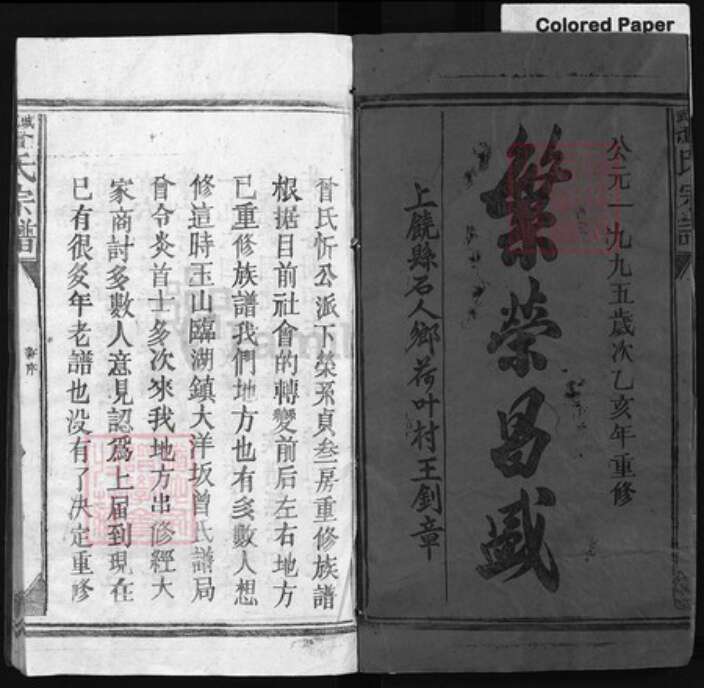 Colored Paper
公元一九九五歲次乙亥年重修
繁榮昌盛
上饒縣石人鄉荷叶村王劍章
曾氏忻公派下榮系貞叁房重修族譜
根据目前社會的轉變前后左右地方
已重修族譜我們地方也有多數人想
修這時玉山臨湖鎮大洋坂曾氏譜局
曾令炎首士多次來我地方出修經大
家商討多數人意見認爲上届到現在
已有很多年老譜也没有了决定重修
曾氏宗譜
序
氏宗譜